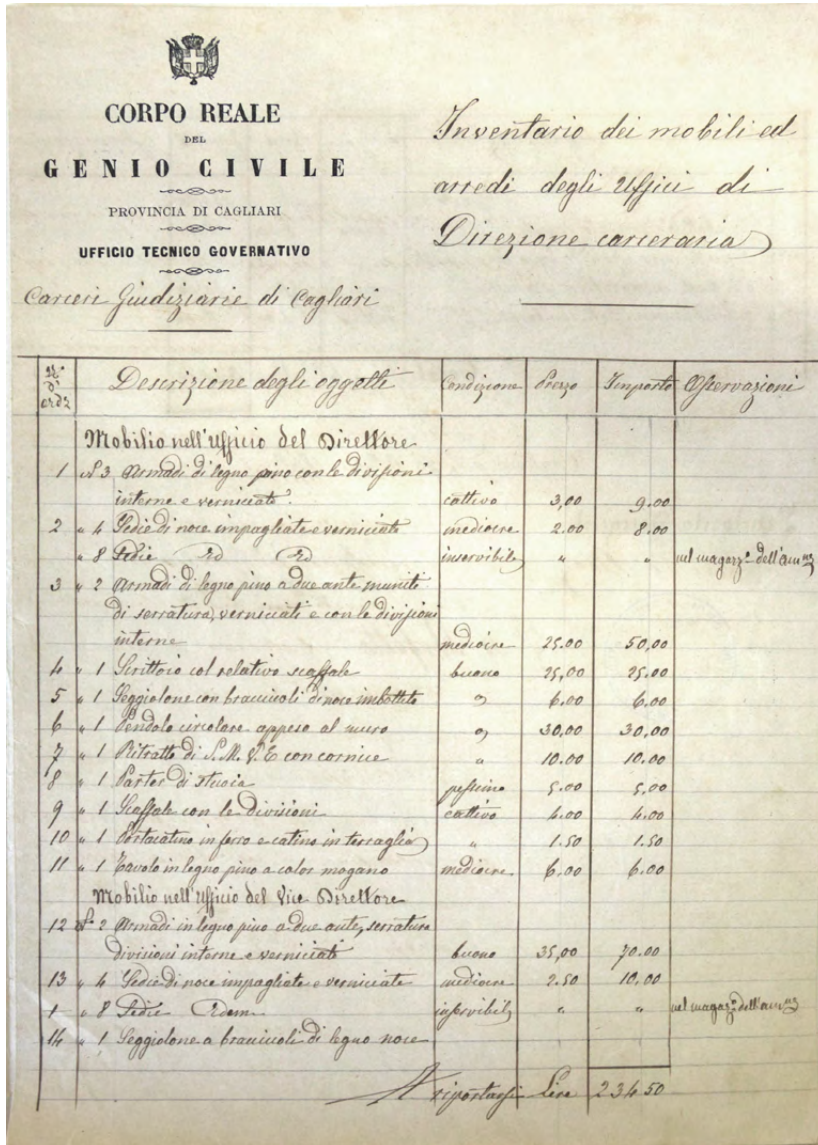 CORPO REALE
DEL
GENIO CIVILE
PROVINCIA DI CAGLIARI
UFFICIO TECNICO GOVERNATIVO
Carceri Giudiziarie di Cagliari
Inventario dei mobili ed
arredi degli Uffici di
Direzione carceraria
N.° d' ord.e Descrizione degli oggetti Condizione Prezzo Importo Osservazioni
Mobilio nell'Ufficio del Direttore
1 N° 3 Armadi di legno pino con le divisioni
interne e verniciate. cattivo 3,00 9.00
2 " 4 Sedie di noce impagliate e verniciate mediocre 2.00 8.00
" 8 Sedie Id Id inservibile " " nel magazz.° dell'
3 " 2 Armadi di legno pino a due ante muniti
di serratura, verniciati e con le divisioni
interne mediocre 25.00 50,00
4 " 1 Scrittoio col relativo scaffale buono 25,00 25.00
5 " 1 Seggiolone con bracciuoli di noce imbottito " 6.00 6.00
6 " 1 Pendolo circolare appeso al muro " 30,00 30,00
7 " 1 Ritratto di S. M. V. E con cornice " 10.00 10.00
8 " 1 di stuoia pessimo 5.00 5,00
9 " 1 Scaffale con le divisioni cattivo 4.00 4.00
10 " 1 Portacatino in ferro e catino in terraglia " 1.50 1.50
11 " 1 Tavolo in legno pino a color mogano mediocre 6.00 6.00
Mobilio nell'Ufficio del Vice Direttore
12 N° 2 Armadi in legno pino a due ante, serrature
divisioni interne e verniciati buono 35,00 70.00
13 " 4 Sedie di noce impagliate e verniciate mediocre 2.50 10.00
1 " 8 Sedie Idem inservibili " " nel magaz.° dell'
14 " 1 Seggiolone a bracciuoli di legno noce
A riportarsi Lire 234 50